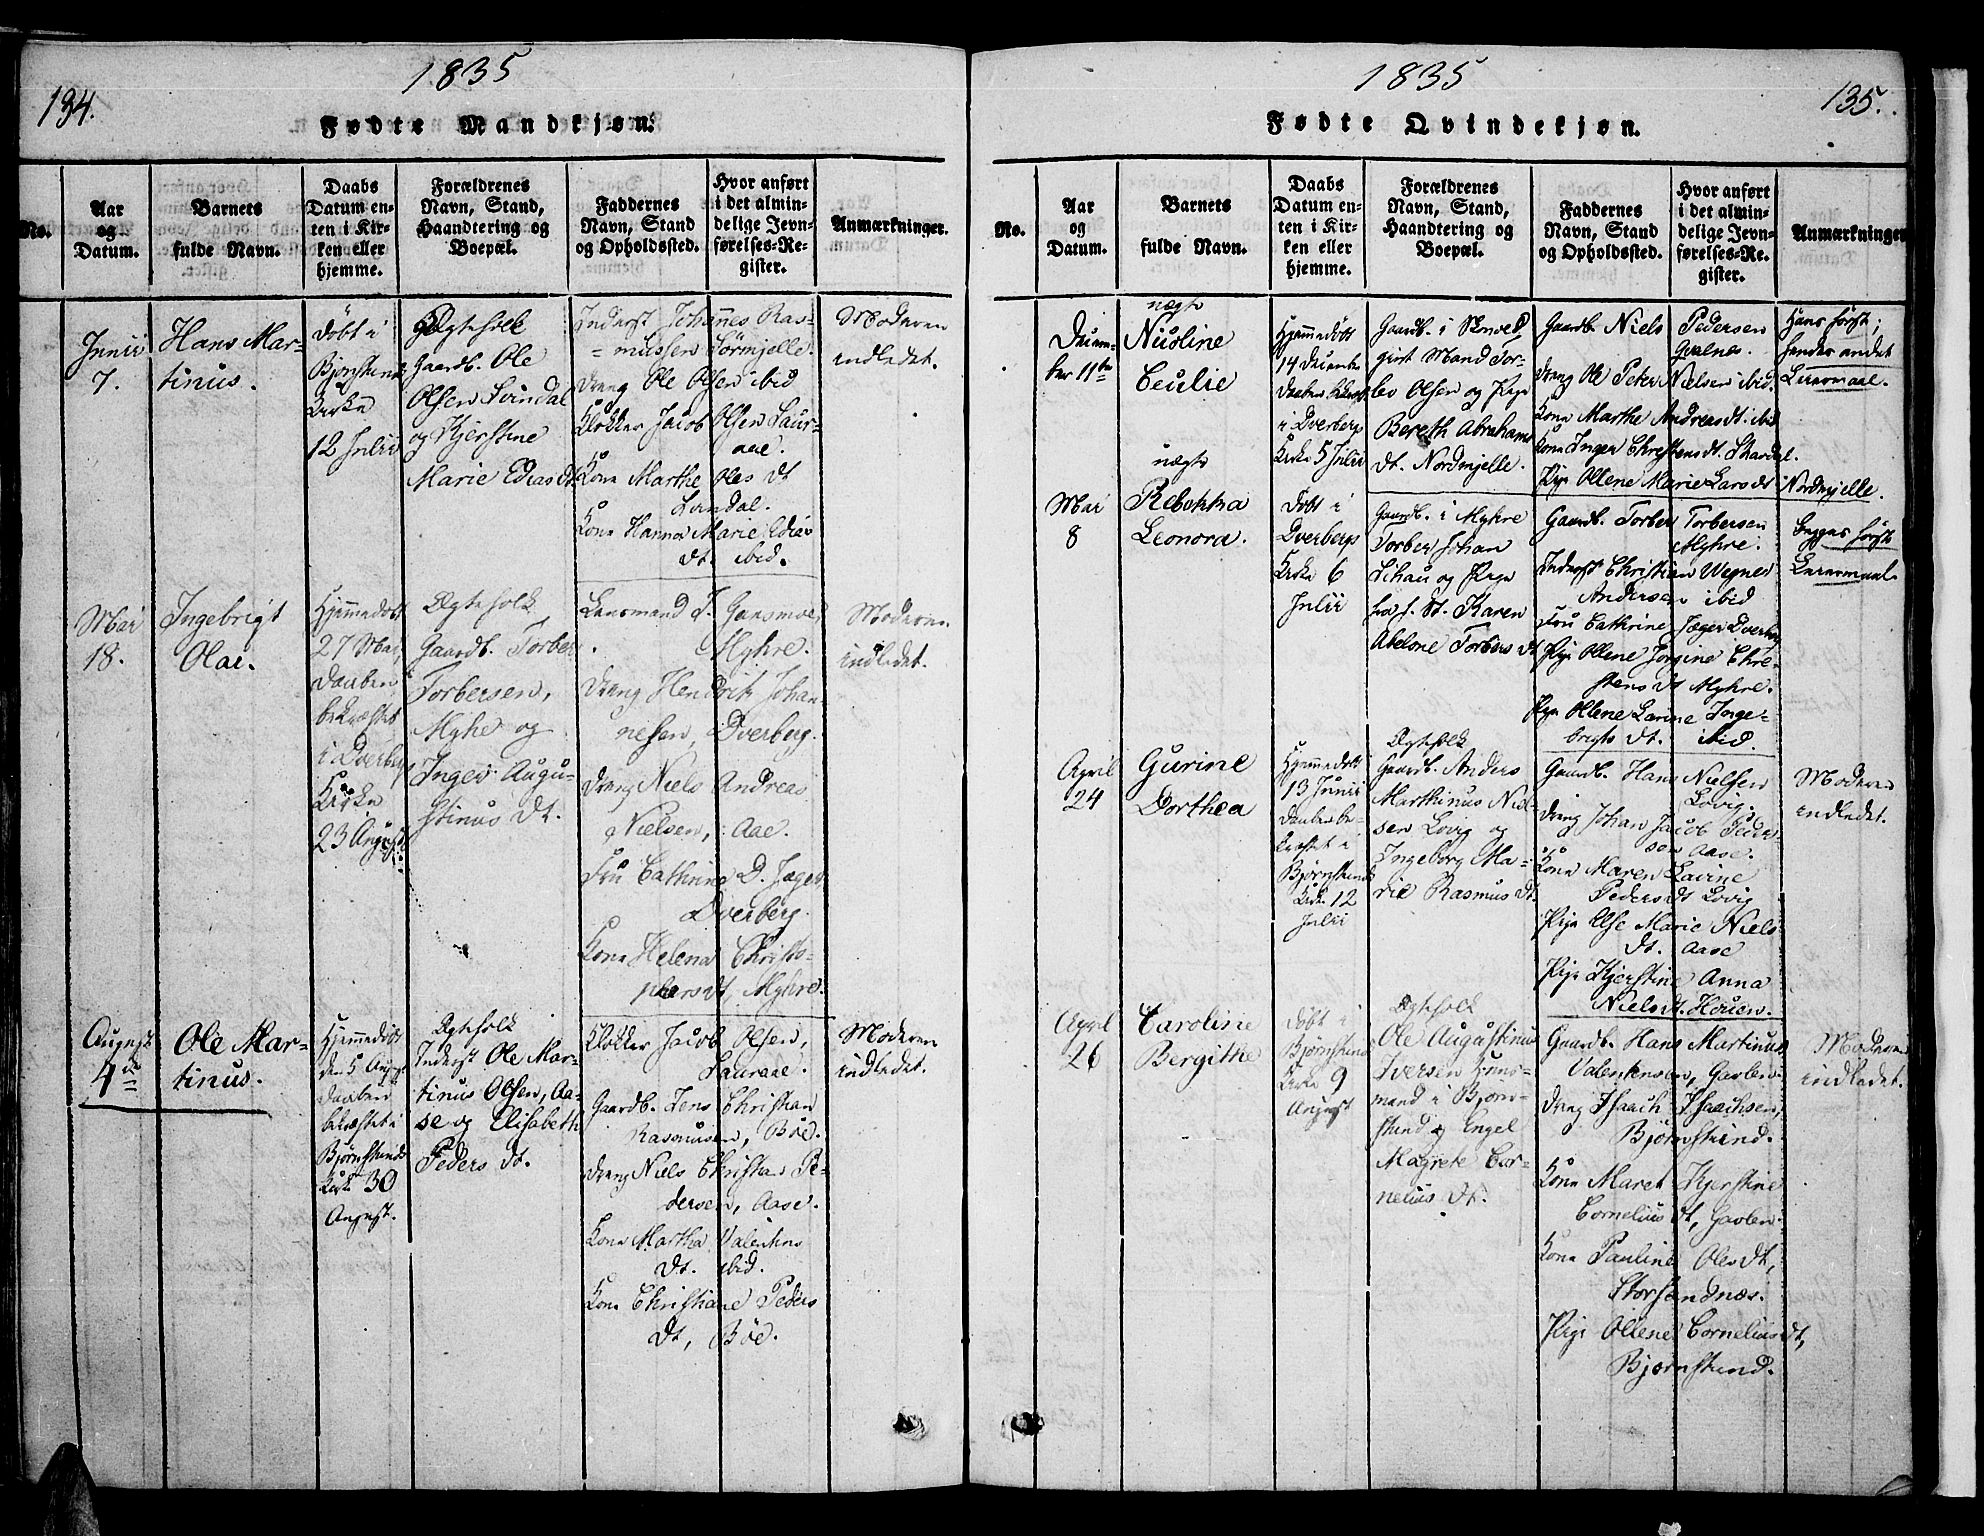 134.
1835
Fødte Mandkjøn.
No.
Aar
og
Datum.
Barnets
fulde Navn.
Daabs
Datum en-
ten i Kir-
ken eller
hjemme.
Forældrenes
Navn, Stand,
Haandtering og
Boepæl.
Faddernes
Navn, Stand
og Opholdssted.
Hvor anført
i det almin-
delige Jevn-
førelses-Re-
gister.
Anmærkninger.
Junii
7.
Hans Mar-
tinus.
Døbt i
Kirke
12 Julii
Ægtefolk
Gaardb. Ole
Olsen
og Kjerstine
Marie Edias dt
Inderst Johannes Ras-
mussen Sørmjelle.
Dreng Ole Olsen ibid
Klokker Jacob Olsen Saur-
aae.
Kone Marthe Oles dt
Kone Hanna Marie Edias
dt. ibid.
Moderen
indledet.
Mai
18.
Ingebrigt
Olai.
Hjemmedøbt
27 Mai,
Daaben
bekræftet
i Dverberg
Kirke
23 August
Ægtefolk
Gaardb. Torber
Torbersen,
Myhre og
Inger Augu-
stinus dt.
Lensmand J.
Myhre.
Dreng Hendrik Johan-
nesen, Dverberg.
Dreng Niels Andreas
Nielsen, Aae.
Fru Cathrine D. Jæger
Dverberg.
Kone Helena Christo-
phersdt, Myhre.
Moderen
indledet.
August
4de
Ole Mar-
tinus.
Hjemmedøbt
den 5 August
Daaben
bekræftet i
Bjørnskinds
Kirke 30
August.
Ægtefolk
Inderst Ole Mar-
tinus Olsen, Aa-
se og Elisabeth
Peders dt.
Klokker Jacob Olsen,
Sauraae.
Gaardb. Jens Christian
Rasmussen, Böe.
Dreng Niels Christian Pe-
dersen, Aase.
Kone Martha Valentins
dt. ibid.
Kone Christiane Peders
dt, Böe.
Moderen
indledet.
1835
135.
Fødte Qvindekjøn.
No.
Aar
og
Datum.
Barnets
fulde Navn.
Daabs
Datum en-
ten i Kir-
ken eller
hjemme.
Forældrenes
Navn, Stand,
Haandtering og
Boepæl.
Faddernes
Navn, Stand
og Opholdssted.
Hvor anført
i det almin-
delige Jevn-
førelses-Re-
gister.
Anmærkninger
Decem-
ber 11te
uægte
Nicoline
Cecilie
Hjemmedøbt
14 December
Daaben
i Dverbergs
Kirke 5 Julii
Gaardb. i
gift Mand Tor-
ber Olsen og Pige
Bereth Abrahams
dt. Nordmjelle.
Gaardb. Niels Pedersen
Dreng Ole Peter Nielsen ibid.
Kone Marthe Andreasdt. ibid
Kone Inger Christensdt.
Pige Ollene Marie Larsdt Nordmjelle.
Hans først;
hendes andet
Leiermaal.
Mai
8
uægte
Rebekka
Leonora.
Døbt i
Dverbergs
Kirke 6
Julii
Gaardb. i Myhre
Torber Johan
og Pige
Karen
Abelone Torbers dt
Gaardb. Torber Torbersen
Myhre.
Inderst Christian Wegner
Andersen ibid
Fru Cathrine Jæger Dverberg
Pige Ollene Jorgine Chri-
stens dt Myhre.
Pige Ollene Larine Inge-
brigts dt. ibid.
Begges første
Leiermaal.
April
24
Gurine
Dorthea
Hjemmedøbt
13 Junii
Daaben be-
kræftet i
Bjørnskinds
Kirke 12
Julii
Ægtefolk
Gaardb. Anders
Marthinus Niel-
sen Lovig og
Ingeborg Ma-
rie Rasmus dt.
Gaardb. Hans Nielsen
Lovig.
Dreng Johan Jacob Peder-
sen Aase.
Kone Maren Lavine
Pedersdt Lovig
Pige Else Marie Niels
dt. Aase
Pige Kjerstine Anna
Nielsdt.
Moderen
indledet.
April
26
Caroline
Bergithe
Døbt i
Bjørnskinds
Kirke 9
August
Ægtefolk
Ole Augustinus
Iversen Huus-
mand i Bjørn-
skind og Engel
Magrete Cor-
nelius dt.
Gaardb. Hans Martinus
Valentinsen, Gavlen.
Dreng Isaach Isaachsen,
Bjørnskind.
Kone Maret Kjerstine
Cornelius dt, Gavlen.
Kone Pauline Olesdt,
Storsandnæs.
Pige Ollene Corneliusdt,
Bjørnskind.
Moderen
indledet.